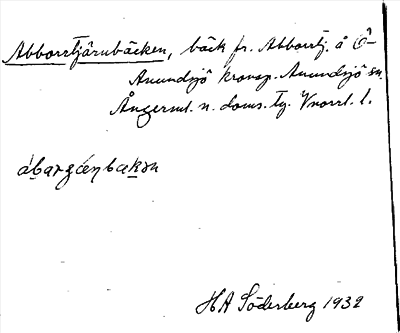 Abborrtjärnbäcken, bäck fr. Abborrtj. å Ö-
Anundsjö kronop. Anundsjö sn.
Ångerml. n. doms. tg. Vnorrl. l.
ábarʒǽŋbakən
HA Söderberg 1932